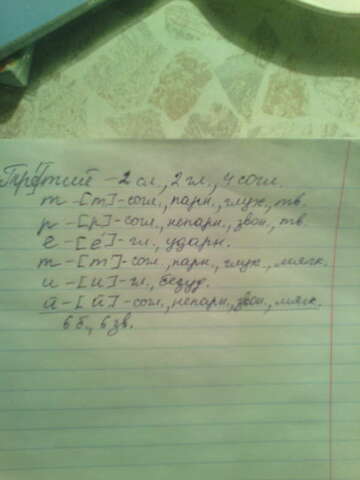 Третий - 2 сл., 2 гл., 4 согл.
т - [т] - согл., парн., глух., тв.
р - [р] - согл., непарн., звон., тв.
е - [é] - гл., ударн.
т - [т] - согл., парн., глух., мягк.
и - [и] - гл., безуд.
й - [й] - согл., непарн., звон., мягк.
6 б., 6 зв.